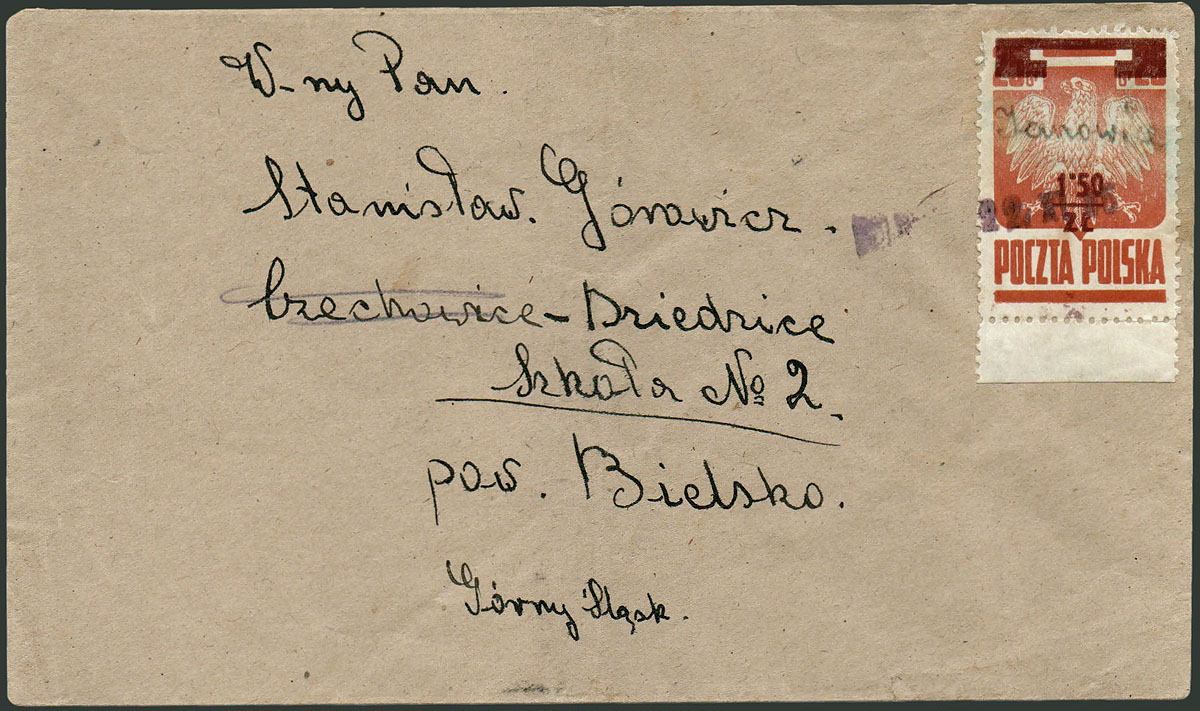 W-ny Pan.
Stanisław. Górowicz.
Czechowice-Dziedzice
Szkoła № 2.
pow. Bielsko.
Górny Śląsk.
1.50
ZŁ
POCZTA POLSKA